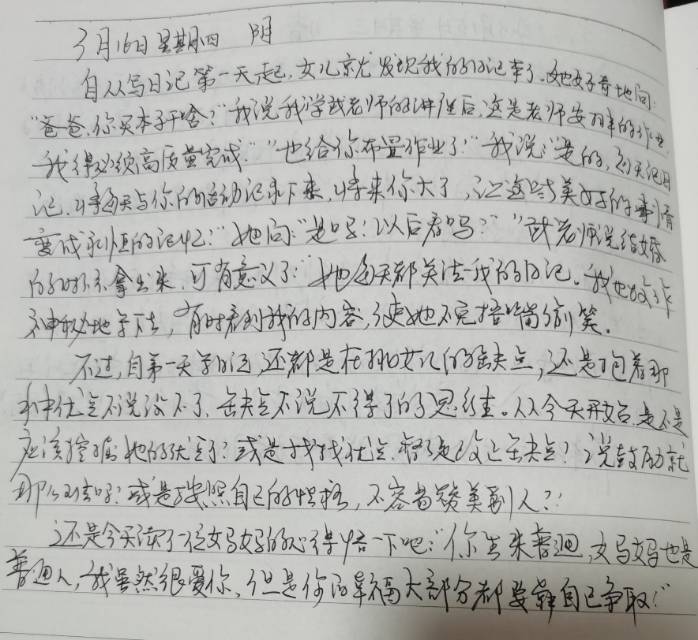 3月16日 星期四 阴
自从写日记第一天起,女儿就发现我的日记本了。她好奇地问:
"爸爸,你买本子干啥?"我说我学武老师的讲座后,这是老师安排的作业,
我得必须高质量完成。""也给你布置作业了?"我说:"是的,每天记日
记,将每天与你的活动记录下来,将来你大了,让这些美好的事情
变成永恒的记忆。"她问"是吗!以后看吗?""武老师说结婚
的时候拿出来,可有意义了。"她每天都关注我的日记。我也故作
神秘地写下去,有时看到我的内容,使她不免捂嘴偷笑。
不过,自第一天写日记,还都是在挑女儿的缺点,还是抱着那
种优点不说没不了,缺点不说不得了的思维。从今天开始,是不是
应该挖掘她的优点?或是找找优点,督促改正缺点?说鼓励就
那么难吗?或是按照自己的性格,不容易赞美别人?!
还是今天读了一位女妈妈的心得悟一下吧:"你生来普通,妈妈也是
普通人,我虽然很爱你,但是你的幸福大部分都要靠自己争取!"